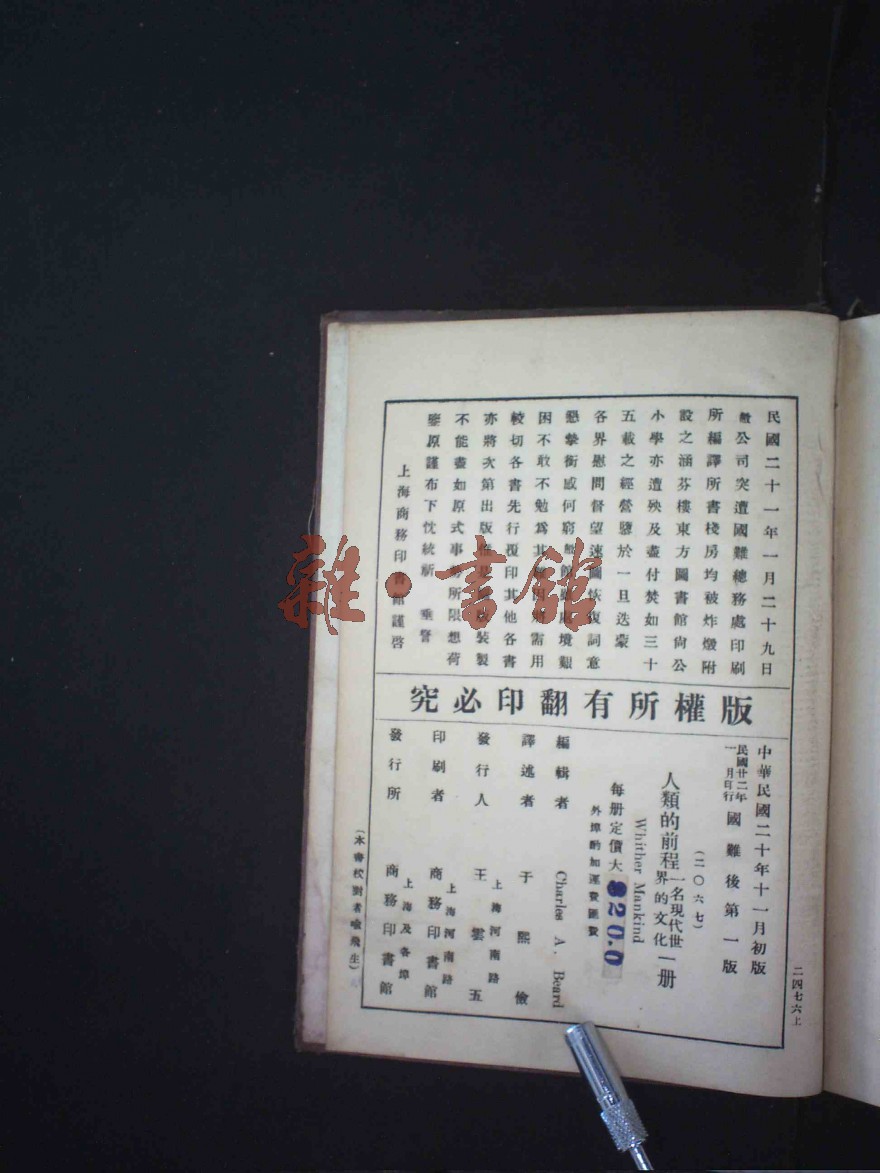 民國二十一年一月二十九日
敝公司突遭國難總務處印刷
所編譯所書棧房均被炸燬附
設之涵芬樓東方圖書館尙公
小學亦遭殃及盡付焚如三十
五載之經營隳於一旦迭蒙
各界慰問督望速圖恢復詞意
懇摯銜感何窮敝館雖處境艱
困不敢不勉爲其難因將需用
較切各書先行覆印其他各書
亦將次第出版惟是圖版裝製
不能盡如原式事勢所限想荷
鑒原謹布下忱統祈 垂詧
上海商務印書館謹啓
版權所有翻印必究
中華民國二十年十一月初版
民國廿二年一月印行 國難後第一版
(二〇六七)
人類的前程 一名現代世界的文化 一册
Whither Mankind
每册定價大
外埠酌加運費匯費
編輯者 Charles A. Beard
譯述者 于熙儉
發行人 王雲五
上海河南路
印刷者 商務印書館
上海河南路
發行所 商務印書館
上海及各埠
(本書校對者喩飛生)
二四七六上
雜·書館